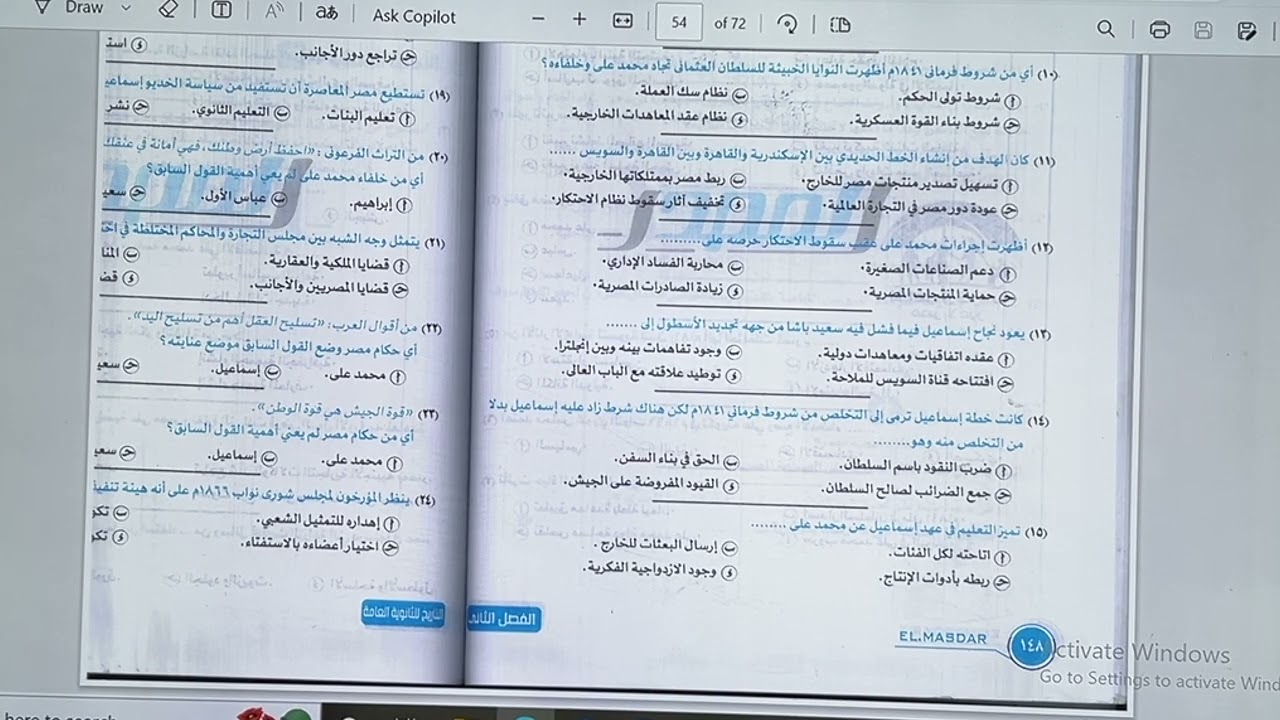 Draw
Ask Copilot
54 of 72
(١٠) أي من شروط فرمانى ١٨٤١م أظهرت النوايا الخبيثة للسلطان العثمانى تجاه محمد على وخلفاءه؟
أ شروط تولى الحكم.
ب نظام سك العملة.
ج شروط بناء القوة العسكرية.
د نظام عقد المعاهدات الخارجية.
(١١) كان الهدف من إنشاء الخط الحديدي بين الإسكندرية والقاهرة وبين القاهرة والسويس ......
أ تسهيل تصدير منتجات مصر للخارج.
ب ربط مصر بممتلكاتها الخارجية.
ج عودة دور مصر في التجارة العالمية.
د تخفيف آثار سقوط نظام الاحتكار.
(١٢) أظهرت إجراءات محمد على عقب سقوط الاحتكار حرصه على .........
أ دعم الصناعات الصغيرة.
ب محاربة الفساد الإداري.
ج حماية المنتجات المصرية.
د زيادة الصادرات المصرية.
(١٣) يعود نجاح إسماعيل فيما فشل فيه سعيد باشا من جهه تجديد الأسطول إلى .......
أ عقده اتفاقيات ومعاهدات دولية.
ب وجود تفاهمات بينه وبين إنجلترا.
ج افتتاحه قناة السويس للملاحة.
د توطيد علاقته مع الباب العالى.
(١٤) كانت خطة إسماعيل ترمى إلى التخلص من شروط فرمانى ١٨٤١م لكن هناك شرط زاد عليه إسماعيل بدلا
من التخلص منه وهو ........
أ ضرب النقود باسم السلطان.
ب الحق في بناء السفن.
ج جمع الضرائب لصالح السلطان.
د القيود المفروضة على الجيش.
(١٥) تميز التعليم في عهد إسماعيل عن محمد على ........
أ اتاحته لكل الفئات.
ب إرسال البعثات للخارج.
ج ربطه بأدوات الإنتاج.
د وجود الازدواجية الفكرية.
EL.MASDAR
١٤٨
الفصل الثانى
ج تراجع دور الأجانب.
(١٩) تستطيع مصر المعاصرة أن تستفيد من سياسة الخديو
أ تعليم البنات.
ب التعليم الثانوي.
ج نشر
(٢٠) من التراث الفرعونى: «احفظ أرض وطنك، فهى أمانة في عنقك
أي من خلفاء محمد على لم يعي أهمية القول السابق؟
أ إبراهيم.
ب عباس الأول.
ج
(٢١) يتمثل وجه الشبه بين مجلس التجارة والمحاكم المختلطة في
أ قضايا الملكية والعقارية.
ب
ج قضايا المصريين والأجانب.
د
(٢٢) من أقوال العرب: «تسليح العقل أهم من تسليح اليد».
أي حكام مصر وضع القول السابق موضع عنايته؟
أ محمد على.
ب إسماعيل.
ج
(٢٣) «قوة الجيش هي قوة الوطن».
أي من حكام مصر لم يعني أهمية القول السابق؟
أ محمد على.
ب إسماعيل.
ج
(٢٤) ينظر المؤرخون لمجلس شورى نواب ١٨٦٦م على أنه هيئة
أ إهداره للتمثيل الشعبي.
ب
ج اختيار أعضاءه بالاستفتاء.
د
التاريخ للثانوية العامة
Activate Windows
Go to Settings to activate Wind
here to search